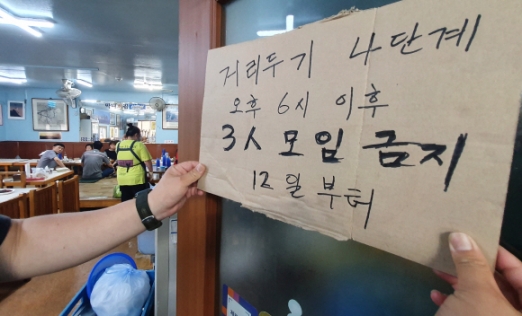 거리두기 4단계
오후 6시 이후
3人 모임 금지
12일부터